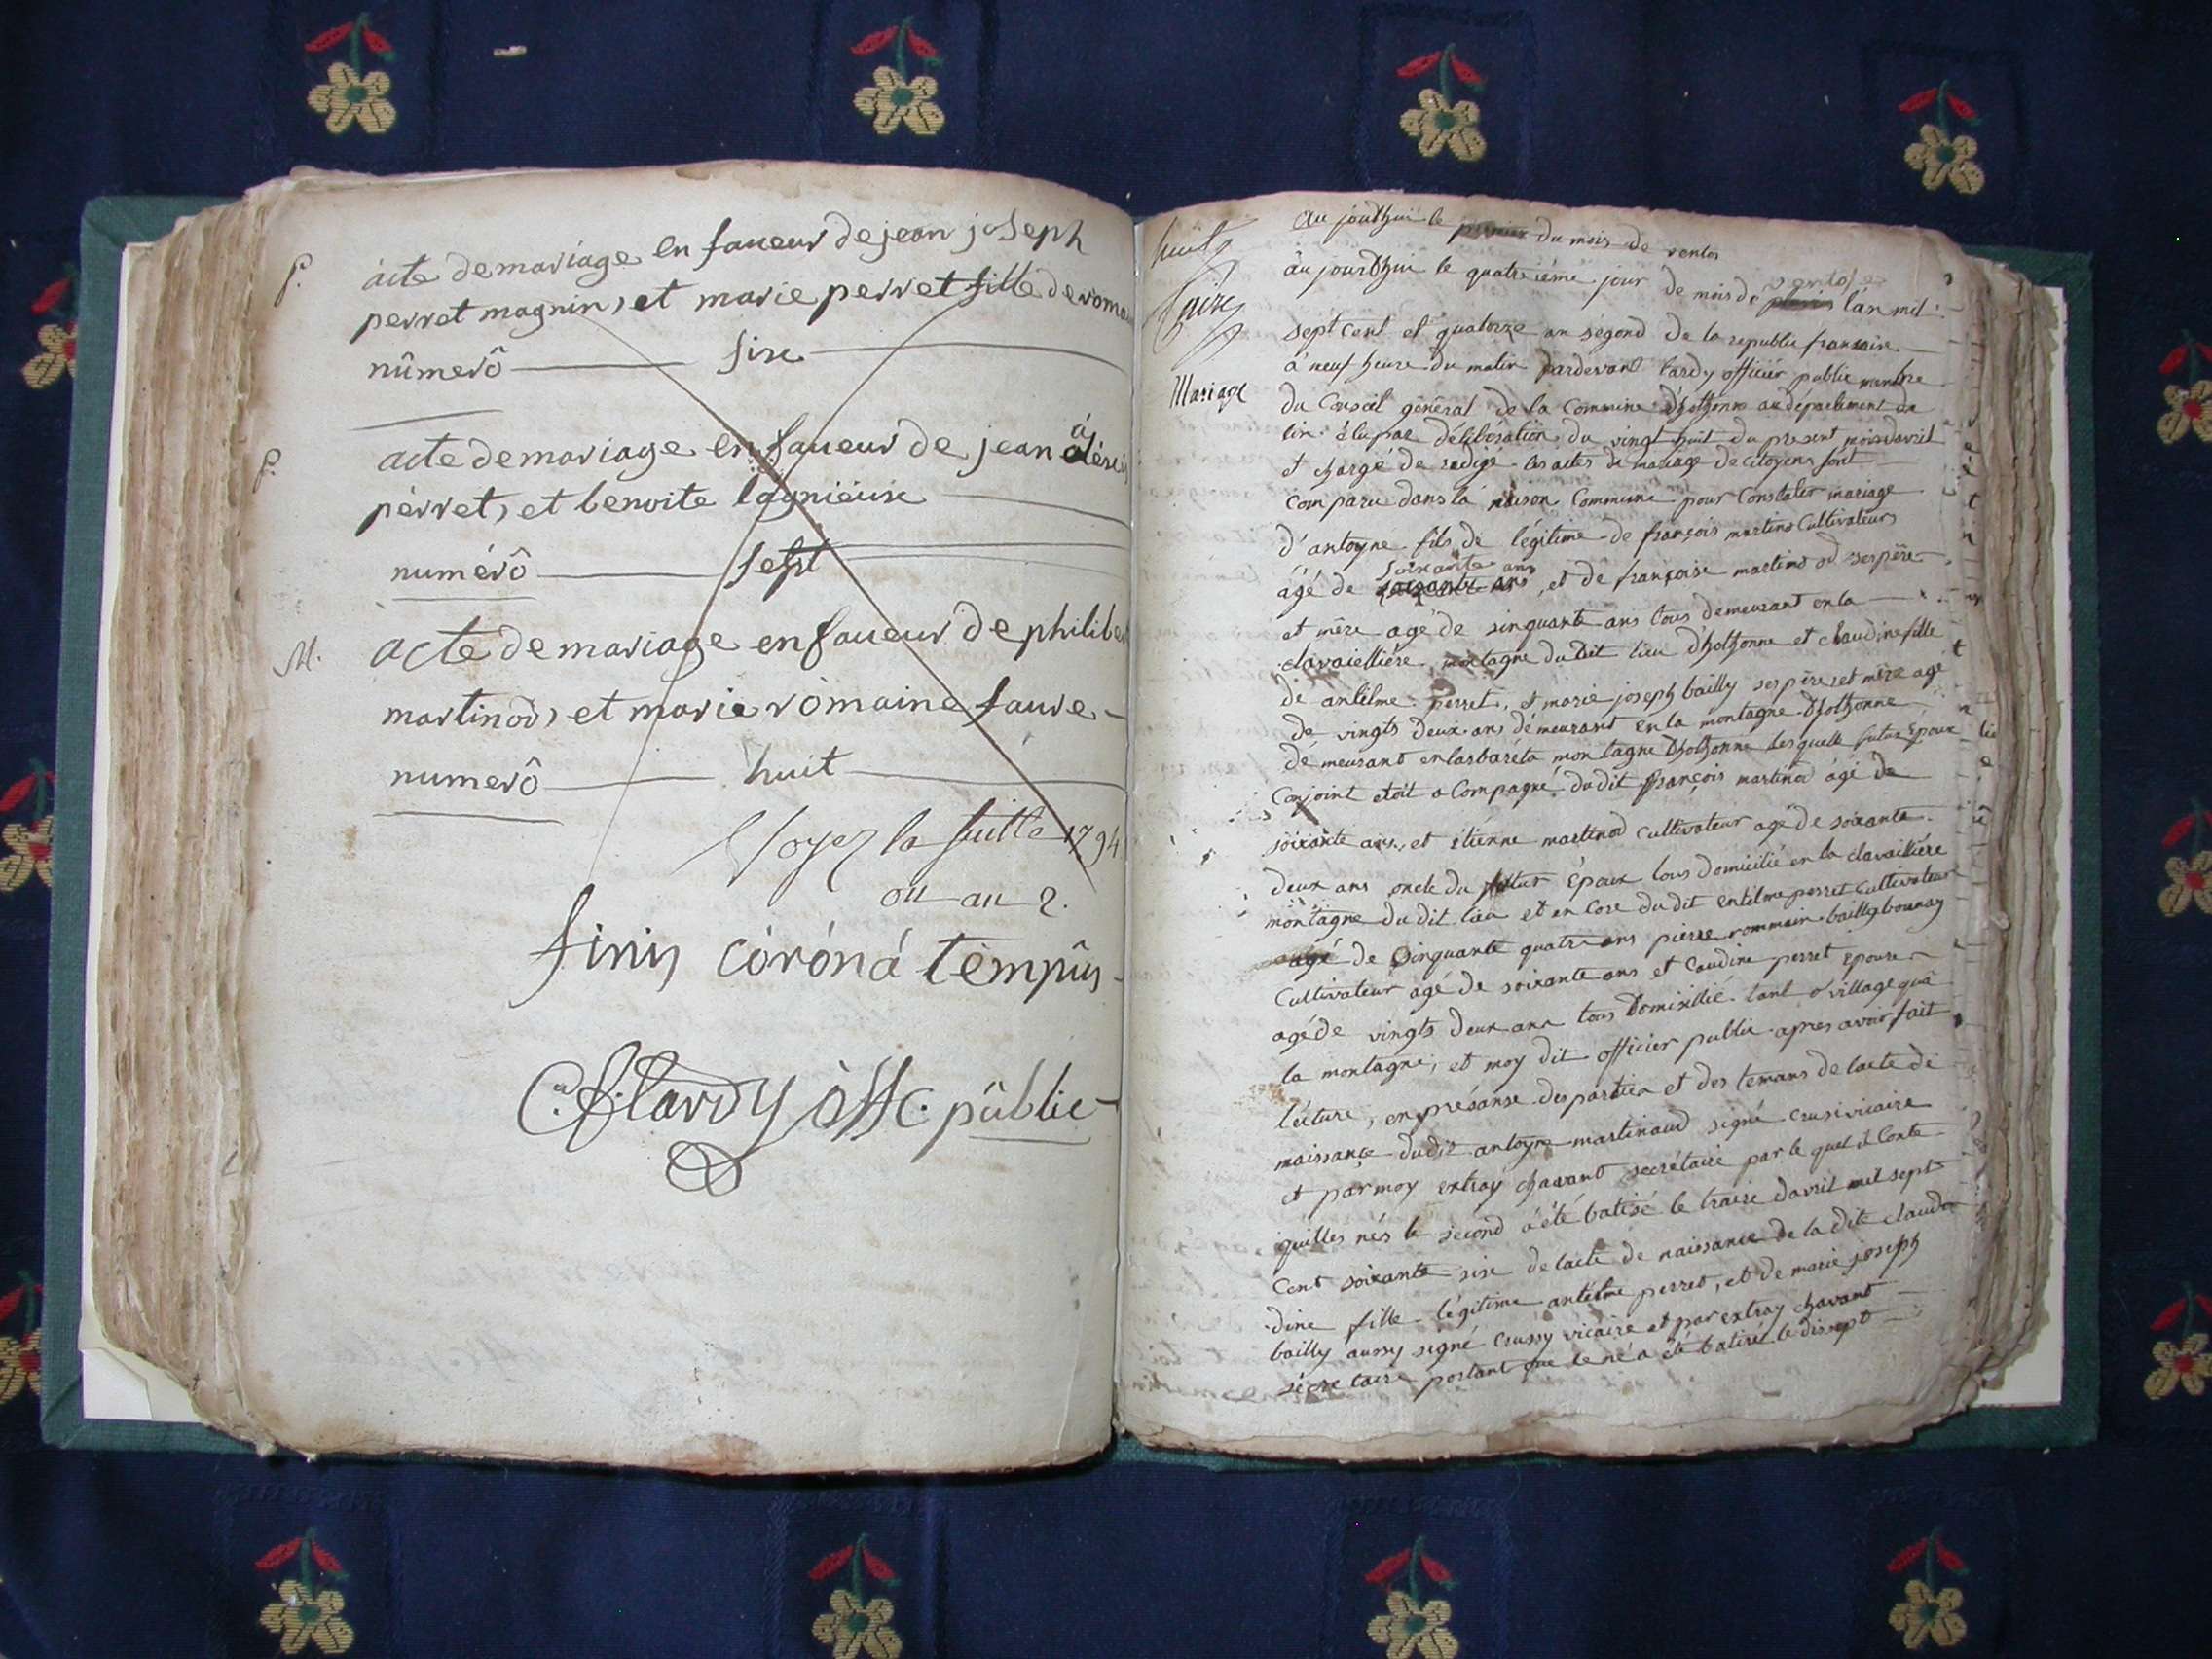 P.
acte de mariage en faueur de jean joseph
perret magnin, et marie perret fille de roma
nûmerô sixe
P.
acte de mariage en faueur de jean
perret, et benoite lagniéuse
numérô sept
M.
acte de mariage en faueur de philibe
martinod, et marie romaine faure
numerô huit
Voyez la suitte 1794
ou an 2.
finis córóná témpûs
lardy off. pûblic
huit
Au jourdhui le premier du mois de ventos
âu jourdhui le quatrieme jour de mois de ventose l'an mil
sept cent et quatorze an segond de la republic francaise
à neuf heure du matin pardevant lardy officiér public membre
Mariage
du Conseil général de la Commune d'hothonne au département de
lin élu par délibération du vingt huit du present mois davril
et chargé de redigé les actes de mariage de citoyens sont
comparu dans la maison Commune pour Constater mariage
d'antoyne fils de légitime de françois martinod Cultivateur
soixante ans
âgé de soixante ans, et de françoise martinod ses père
et mère agé de sinquante ans tous demeurant en la
clavaielliére montagne du dit lieu d'hothonne et claudine fille
de antelme perret, et marie joseph bailly ses père et mère agé
de vingts deux ans démeurant en la montagne d'hothonne
dé meurant montagne d'hothonne les quelle futur Epoux
Conjoint etoit a Compagné du dit françois martinod âgé de
soixante ans, et étienne martinod cultivateur agé de soixante
deux ans oncle du futur Époux tous domicilié en la clavailliére
montagne du dit lieu et en core du dit entelme perret cultivateur
agé de Sinquante quatre ans pierre rommain bailly bounay
Cultivateur agé de soixante ans et Caudine perret epouse
agé de vingts deux ans tous Domixillié tant o village qua
la montagne, et moy dit officiér public apres avoir fait
lécture, en présanse des parties et des temans de lacte de
naissance dudit antoyne martinaud signé crusi vicaire
et par moy extray chavant secrétaire par le quel il Conte
quilles nés le second à été batisé le traise davril mil sept
Cent soixante sise de lacte de naissance de la dite claudi
dine fille légitime antelme perret, et de marie joseph
bailly aussy signé Crussy vicaire et par extray chavant
sécre taire portant que le né a été batisé le dissept